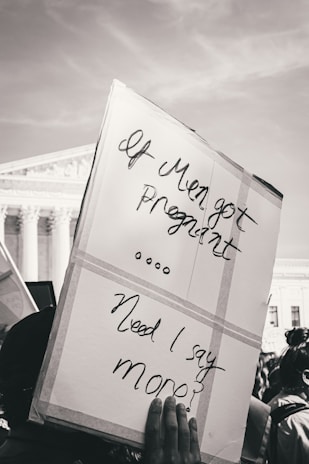 If Men got
Pregnant
....
Need I say
more?